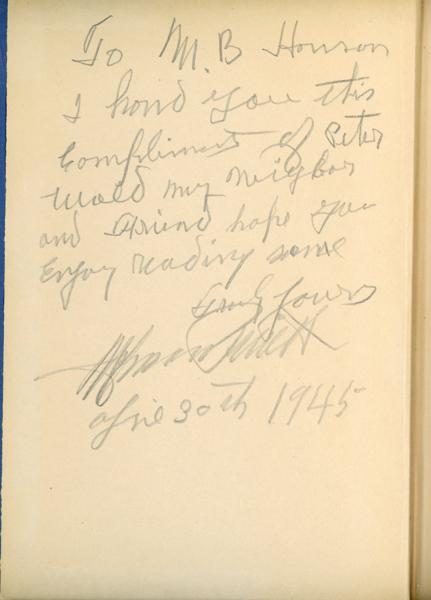 To M.B Honson
I hand you this
Compliment of Peter
Wold my Neighbor
and Friend hope you
Enjoy reading same
Truly Yours
30th 1945